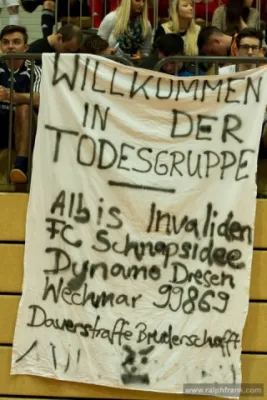 WILLKOMMEN
IN DER
TODESGRUPPE
Albis Invaliden
FC Schnapsidee
Dynamo Dresen
Wechmar 99869
Dauerstraffe Bruderschafft
www.ralphfrank.com